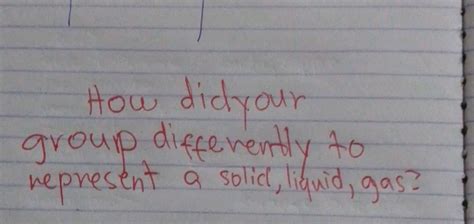 How did your
group differently to
represent a solid, liquid, gas?